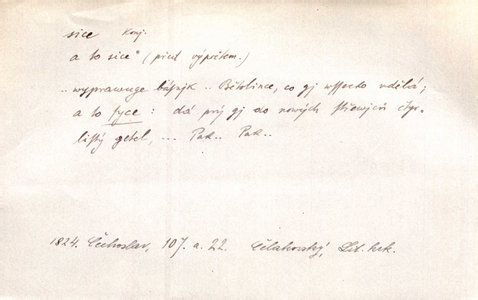 sice konj.
a to sice" (před výpočtem.)
.. wyprawuge básnjk .. Bětolince, co gj wssecko udělá;
a to syce: dá prý gj do nowých střewjců čtyr-
listý getel, ... Pak.. Pak..
1824. Čechoslav, 107. a. 22. Čelakowský, Lit. krk.